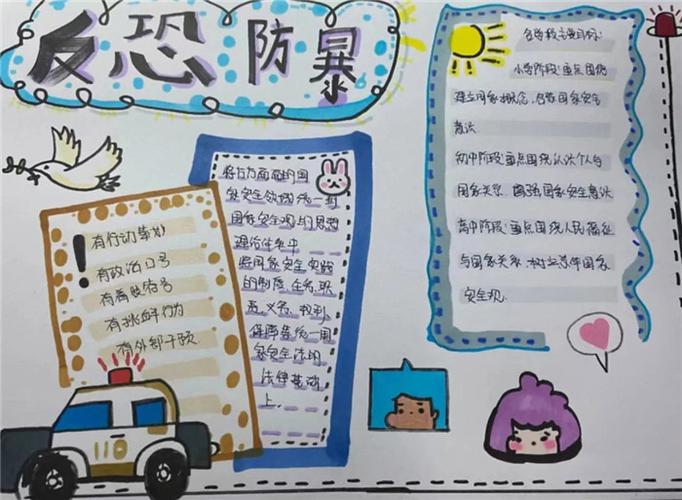 反恐防暴
有行动策划
有政治口号
有着装符号
有挑衅行为
有外部干预
将各方面面的国
家安全领域统一到
国家安全观与思想
理论体系中
将国家安全实践
的制度、任务、职
责、义务、权利、
保障等统一用
家安全法的
法律基础
上
各学段主要目标:
小学阶段:重点围绕
建立国家概念,启蒙国家安全
意识
初中阶段:重点围绕认识个人与
国家关系,增强国家安全意识
高中阶段:重点围绕人民福祉
与国家关系,树立总体国家
安全观
110